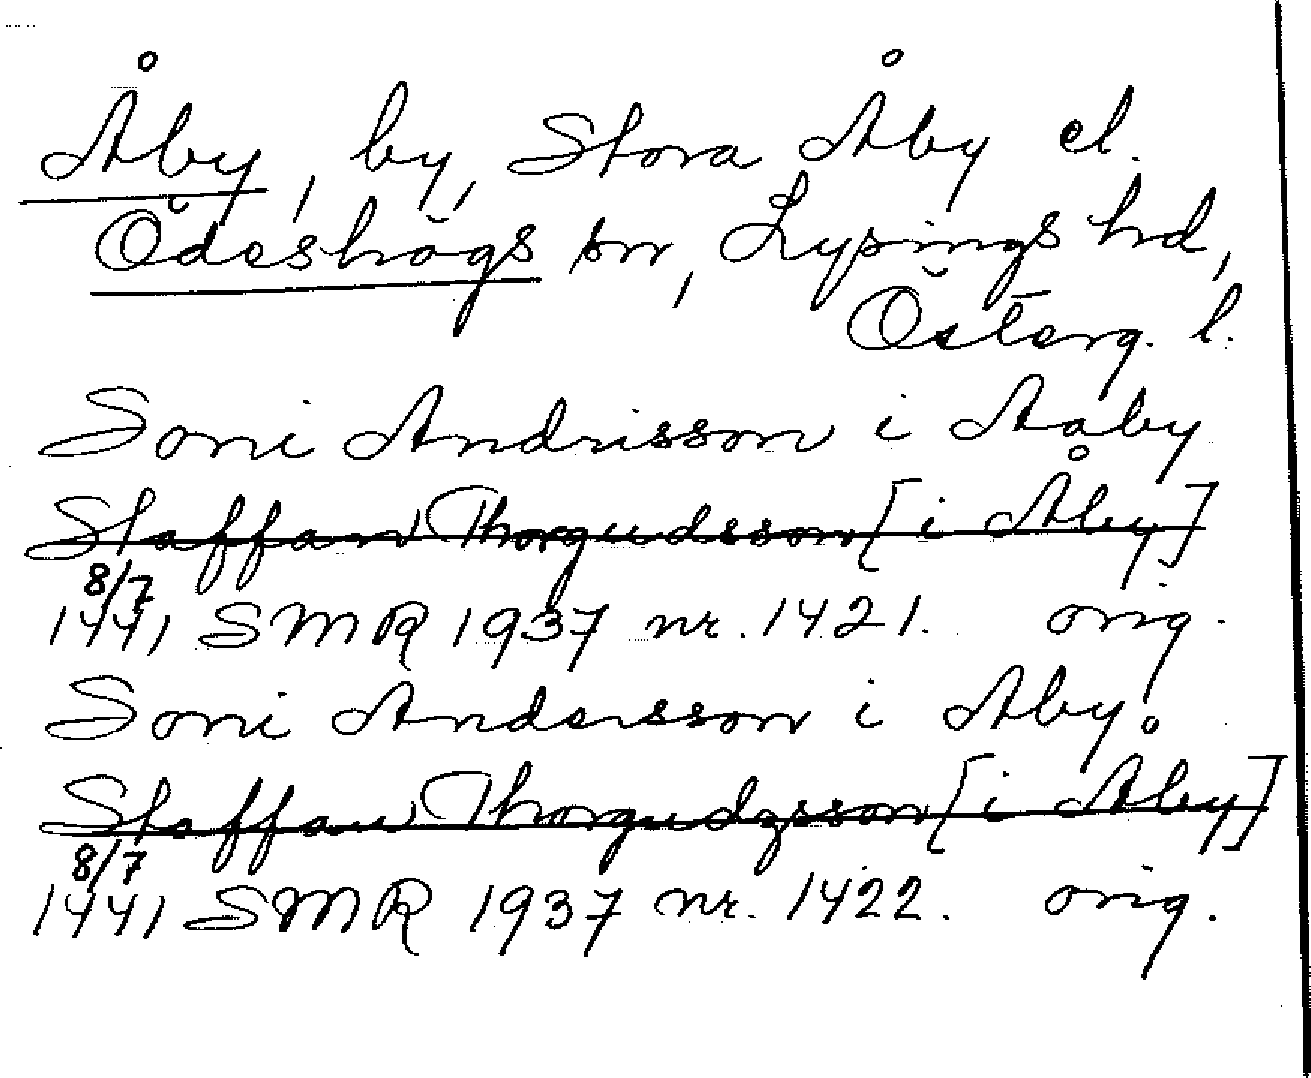 Åby, by, Stora Åby el.
Ödeshögs sn, Lysings hd,
Österg. l.
Soni Andrisson i Aaby
Staffan Thorgudsson [i Åby]
8/7
1441 SMR 1937 nr. 1421. orig.
Soni Andersson i Aby.
Staffan Thorgudzsson [i Åby]
8/7
1441 SMR 1937 nr. 1422. orig.